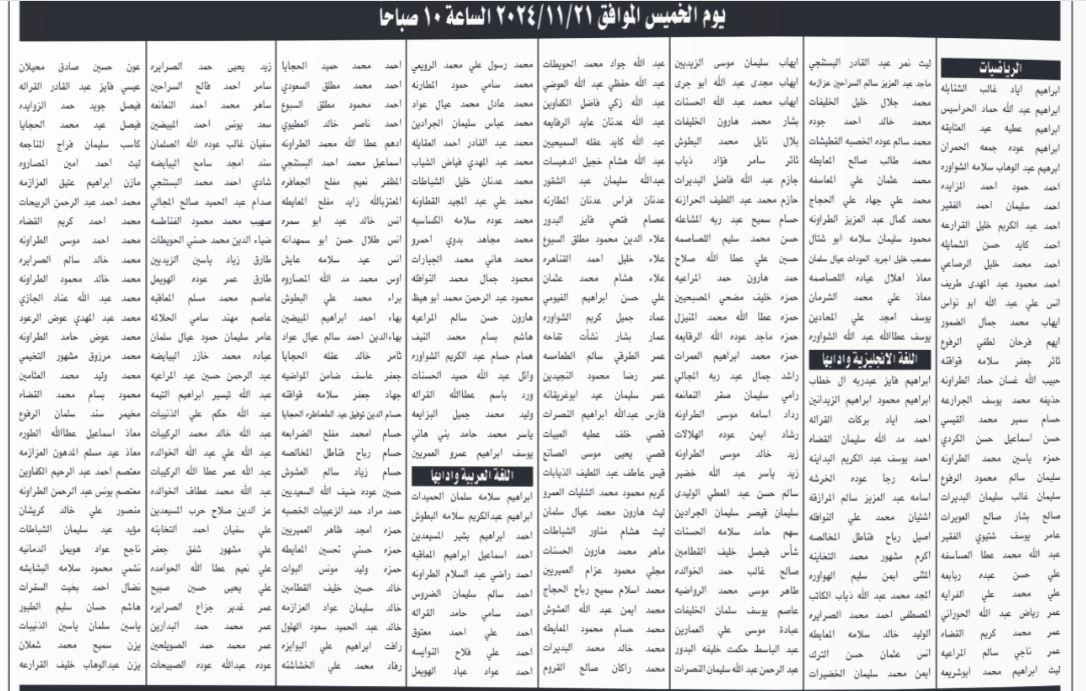 يوم الخميس الموافق ٢٠٢٤/١١/٢١ الساعة ١٠ صباحا
الرياضيات
ابراهيم اياد غالب الشتابله
ابراهيم عبد الله حماد الحراسيس
ابراهيم عطيه عيد العتايقه
ابراهيم عوده جمعه الحمران
ابرهيم عبد الوهاب سلامه الشواوره
احمد حمود احمد المزايده
احمد سليمان احمد الفقير
احمد عبد الكريم خليل القرارعه
احمد كايد حسن الشمايله
احمد محمد خليل الرصاعي
احمد محمود عبد المهدي طريف
انس علي عبد الله ابو نواس
ايهاب محمد جمال الضمور
ايهم فرحان لطفي الرفوع
ثائر جعفر سلامه قوافنه
حبيب الله غسان حماد الطراونه
حذيفه محمد يوسف الجرازعه
حسام سمير محمد القيسي
حسن اسماعيل حسن الكردي
حمزه ياسين محمد الطراونه
سليمان سالم محمود الرفوع
سليمان غالب سليمان البديرات
صالح بشار صالح العويرات
عامر يوسف شتيوي الفقير
عبد الله محمد عطا العساسفه
علي حسن عبده ربابعه
علي محمد علي الفرايه
عمر رياض عبد الله الحوراني
عمر محمد كريم القضاه
عمر ناجي سالم المراعيه
ليث ابراهيم محمد ابوشريمه
ليث نمر عبد القادر البستنجي
ماجد عبد العزيز سالم السراحين عزازمه
محمد جلال خليل الخليفات
محمد خالد احمد جوده
محمد سالم عوده الخصبه القطيشات
محمد طالب صالح المعايطه
محمد عثمان علي المعاسفه
محمد علي جهاد علي الحجاج
محمد كمال عبد العزيز الطراونه
محمود سليمان سلامه ابو شتال
مصعب خليل اجريد العودات عيال سلمان
معاذ اهلال عياده اللصاصمه
معاذ علي محمد الشرمان
يوسف امجد علي المحادين
يوسف عطاالله عبد الله الشواوره
اللغة الانجليزية وادابها
ابراهيم فايز عبدربه ال خطاب
ابراهيم محمود ابراهيم الزيدانين
احمد اياد بركات القراله
احمد مد الله سليمان القضاه
احمد يوسف عبد الكريم البداينه
اسامه رجا عوده الخرشه
اسامه عبد العزيز سالم المرازقه
اشتيان محمد علي النوافله
اصيل رباح قناطل المخالصه
اكرم مشهور محمد التخاينه
المثنى ايمن سليم الهواوره
المجد محمد عبد الله ذياب الكاتب
المصطفى احمد محمد الصرايره
الوليد خالد سلامه المعايطه
انس عثمان حسن الترك
ايمن محمد سليمان الخضيرات
ايهاب سليمان موسى الزيديين
ايهاب مجدى عبد الله ابو جرى
ايهاب محمد عبد الله الحسنات
بشار محمد هارون الخليفات
بلال نايل محمد البطوش
ثائر سامر فؤاد ذياب
جازم عبد الله فاضل البديرات
حازم محمد عبد اللطيف الحرازنه
حسام سميح عبد ربه المشاعله
حسن محمد سليم اللصاصمه
حسين علي عطا الله صلاح
حمد هارون حمد المراعيه
حمزه خليف مضحي المصبحيين
حمزه عطا الله محمد المنيزل
حمزه ماجد عوده الله الرقايعه
حمزه محمد ابراهيم العمرات
راشد جمال عبد ربه المجالي
رامي سليمان صقر النعانعه
رداد اسامه موسى الطراونه
رشاد ايمن عوده الهلالات
زيد خالد موسى الطراونه
زيد ياسر عبد الله خضير
سالم حسن عبد المعطي الوليدى
سليمان قيصر سليمان الجرادين
سهم حامد سلامه الحسنات
شأس فيصل خليف القطامين
صالح غالب حمد الخوالده
طاهر موسى محمد الرواضيه
عاصم يوسف سلمان الخليفات
عبادة موسى علي العمارين
عبد الباسط حكمت خليفه البدور
عبد الرحمن عبد الله سليمان النصرات
عبد الله جواد محمد الحويطات
عبد الله حفظي عبد الله العوضي
عبد الله زكي فاضل الكفاوين
عبد الله عدنان عايد الرفايعه
عبد الله كايد عقله السميحيين
عبد الله هشام خجيل الدهيسات
عبدالله سليمان عبد الشقور
عدنان فراس عدنان المطارنه
عصام فتحي فايز البدور
علاء الدين محمود مطلق السبوع
علاء خليل احمد القناهره
علاء هشام محمد عثمان
علي حسن ابراهيم الفيومي
عماد جميل كريم الشواوره
عمار بشار نشأت تفاحه
عمر الطرقي سالم الطعامسه
عمر رضا محمود النجيدين
عمر سليمان عيد ابوغريقانه
فارس عبدالله ابراهيم النصرات
قصي خلف عطيه العبيات
قصي يحيى موسى الصانع
قيس عاطف عبد اللطيف الذيابات
كريم محمود محمد الشلبيات العمرو
ليث هارون محمد عيال سلمان
ليث هشام مناور الشباطات
ماهر محمد هارون الحسنات
مجلي محمود عزام العميريين
محمد اسلام سميح رباح الحجاج
محمد ايمن عبد الله العشوش
محمد حسام محمود المعايطه
محمد خالد محمد البديرات
محمد راكان صالح القروم
محمد رسول علي محمد الرويعي
محمد سامي حمود المطارنه
محمد عادل محمد عيال عواد
محمد عباس سليمان الجرادين
محمد عبد القادر احمد العقايله
محمد عبد المهدي فياض الشياب
محمد عدنان خليل الشباطات
محمد علي عبد المجيد القطاونه
محمد عوده سلامه الكساسبه
محمد مجاهد بدوي احمرو
محمد هاني محمد الجبارات
محمود جمال محمد النوافله
محمود عبد الرحمن محمد ابو هيظ
هارون حسن سالم المراعيه
هاشم بسام محمد النيف
همام حسام عبد الكريم الشواوره
وائل عبد الله حميد الحسنات
ورد باسم عطاالله القراله
وليد محمد جميل البزايعه
ياسر محمد حامد بني هاني
يوسف ابراهيم عمرو العمريين
اللغة العربية وادابها
ابراهيم سلامه سلمان الحميدات
ابراهيم عبدالكريم سلامه البطوش
احمد ابراهيم بشير المسيعدين
احمد اسماعيل ابراهيم المعاقبه
احمد راضي عبد السلام الطراونه
احمد سالم سليمان الضروس
احمد سامي حامد القراله
احمد علي احمد معتوق
احمد علي فلاح النوايسه
احمد عواد عياد الهويمل
احمد محمد حميد الحجايا
احمد محمد مطلق السعودي
احمد محمود مطلق السبوع
احمد ناصر خالد العطيوي
ادهم عطا الله محمد الطراونه
اسماعيل محمد احمد البستنجي
المظفر نعيم مفلح الجعافره
المعتزبالله زايد مفلح المعايطه
انس خالد عيد ابو سمره
انس طلال حسن ابو سمهدانه
انس عيد سلامه عايش
اوس محمد مد الله المصاروه
براء محمد علي البطوش
بهاء احمد ابراهيم المبيضين
بهاءالدين احمد سالم عيال عواد
ثامر خالد عقله الحجايا
جعفر عاسف ضامن المواضيه
جهاد جعفر سلامه قوافنه
حسام الدين توفيق عيد الطخاطره الحجايا
حسام امحمد مفلح الضرابعه
حسام رباح قناطل المخالصه
حسام زياد سالم العشوش
حسين عوده ضيف الله السعيديين
حمد مراد حمد الزعبيات الخصبه
حمزه امجد ظاهر العميريين
حمزه حسني تحسين المعايطه
حمزه وليد مونس البوات
خالد حسين خليف القطامين
خالد سليمان عواد العزازمه
خالد عبد الحميد سعود الهلول
رافت ابراهيم علي البوايزه
رفاد محمد علي الخشاشنه
زيد يحيى حمد الصرايره
سامر احمد فالح السراحين
ساهر محمد احمد النعانعه
سعد يونس احمد المبيضين
سفيان غالب عوده الله الصلمان
سند امجد سامح البيايضه
شادي احمد محمد البستنجي
صدام عبد الحميد صالح المجالي
صهيب محمد محمود الفناطسه
ضياء الدين محمد حسني الحويطات
طارق زياد ياسين الزيديين
طارق عمر عوده الهويمل
عاصم محمد مسلم المعاقبه
عاصم مهند سامي الحلالمه
عامر سليمان حمود عيال سلمان
عباده محمد خازر البيايضه
عبد الرحمن حسين عيد المراعيه
عبد الله تيسير ابراهيم التيمه
عبد الله حكم علي الذنيبات
عبد الله خالد محمد الركيبات
عبد الله علي عبد الله الخوالده
عبد الله عمر عطا الله الركيبات
عبد الله محمد عطاف الخوالده
عز الدين صلاح حرب المسيعدين
علي سفيان احمد التخاينه
علي مشهور شفق جعفر
علي نعيم عطا الله الحوامده
علي يحيى حسين صبيح
عمر غدير جزاع الصرايره
عمر محمد حمد البدارين
عمر محمد حمد الصويلحين
عوده عبدالله عوده الصبيحات
عون حسين صادق محيلان
عيسى فايز عبد القادر القراله
فيصل جويد حمد الزوايده
فيصل عيد محمد الحجايا
كاسب سليمان فراج المناجعه
ليث احمد امين المصاروه
مازن ابراهيم عتيق العزازمه
محمد احمد عبد الرحمن الربيحات
محمد احمد كريم القضاه
محمد احمد موسى الطراونه
محمد خالد سالم الصرايره
محمد خالد محمود الطراونه
محمد عبد الله عناد الجازي
محمد عبد المهدي عوض الرعود
محمد عوض حامد الطراونه
محمد مرزوق مشهور التخيمي
محمد وليد محمد العثامين
محمود بسام محمد القضاه
مخيمر سند سلمان الرفوع
معاذ اسماعيل عطاالله الطوره
معاذ عيد مسلم المدهون العزازمه
معتصم احمد عبد الرحيم الكفاوين
معتصم يونس عبد الرحمن الطراونه
منصور علي خالد كريشان
مؤيد عبد سليمان الشباطات
ناجح عواد هويمل الدمانيه
نشمي محمود سلامه البشابشه
نضال احمد بخيت السقرات
هاشم حسان سليم الطبور
ياسين سلمان ياسين الذنيبات
يزن سميح محمد شعلان
يزن عبدالوهاب خليف القرارعه